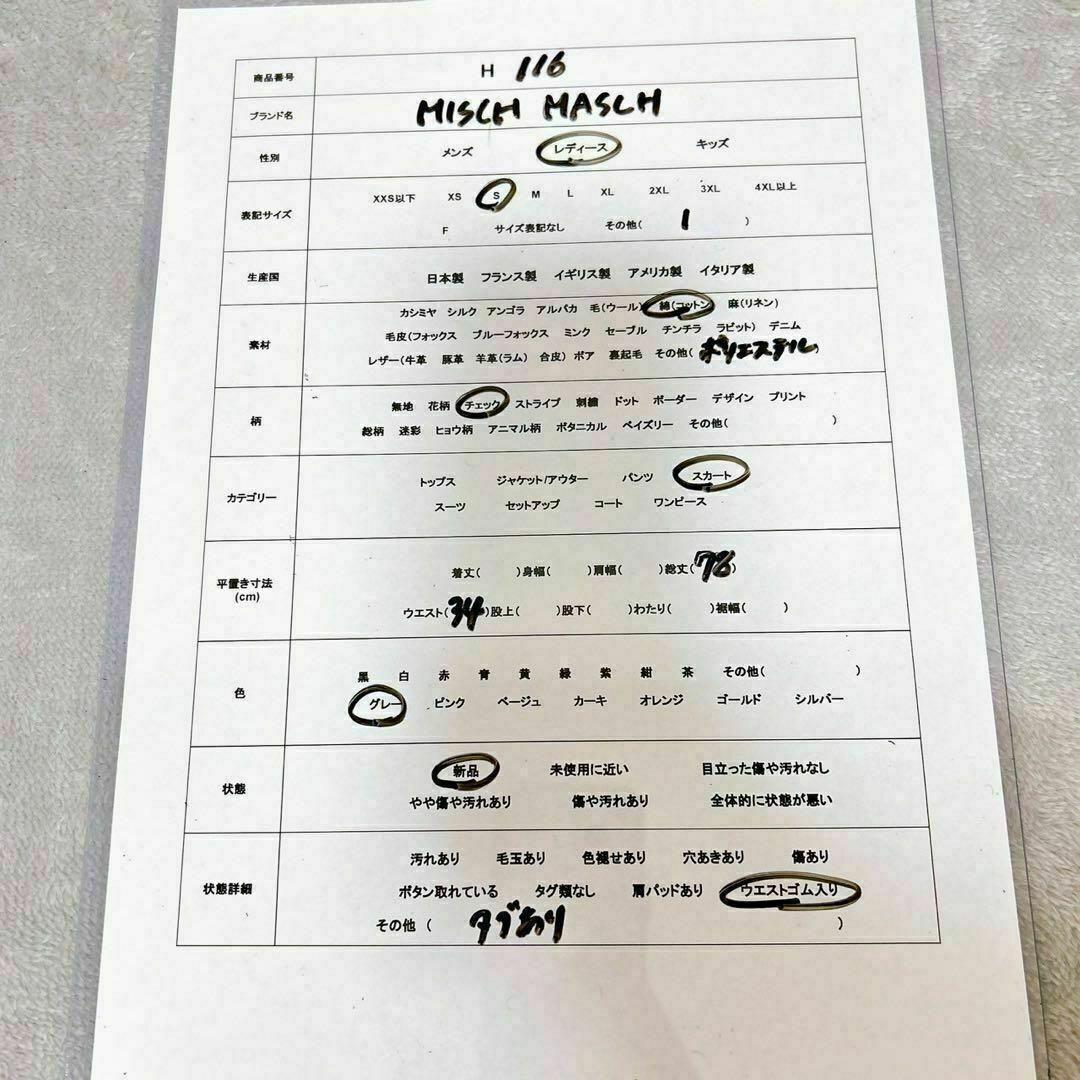 商品番号 H 116
ブランド名 MISCH MASCH
性別 メンズ レディース キッズ
表記サイズ
XXS以下 XS S M L XL 2XL 3XL 4XL以上
F サイズ表記なし その他( 1 )
生産国 日本製 フランス製 イギリス製 アメリカ製 イタリア製
素材
カシミヤ シルク アンゴラ アルパカ 毛(ウール) 綿(コットン) 麻(リネン)
毛皮(フォックス ブルーフォックス ミンク セーブル チンチラ ラビット) デニム
レザー(牛革 豚革 羊革(ラム) 合皮) ボア 裏起毛 その他( ポリエステル )
柄
無地 花柄 チェック ストライプ 刺繍 ドット ボーダー デザイン プリント
総柄 迷彩 ヒョウ柄 アニマル柄 ボタニカル ペイズリー その他( )
カテゴリー
トップス ジャケット/アウター パンツ スカート
スーツ セットアップ コート ワンピース
平置き寸法
(cm)
着丈( )身幅( )肩幅( )総丈( 78 )
ウエスト( 34 )股上( )股下( )わたり( )裾幅( )
色
黒 白 赤 青 黄 緑 紫 紺 茶 その他( )
グレー ピンク ベージュ カーキ オレンジ ゴールド シルバー
状態
新品 未使用に近い 目立った傷や汚れなし
やや傷や汚れあり 傷や汚れあり 全体的に状態が悪い
状態詳細
汚れあり 毛玉あり 色褪せあり 穴あきあり 傷あり
ボタン取れている タグ類なし 肩パッドあり ウエストゴム入り
その他 ( タグあり )